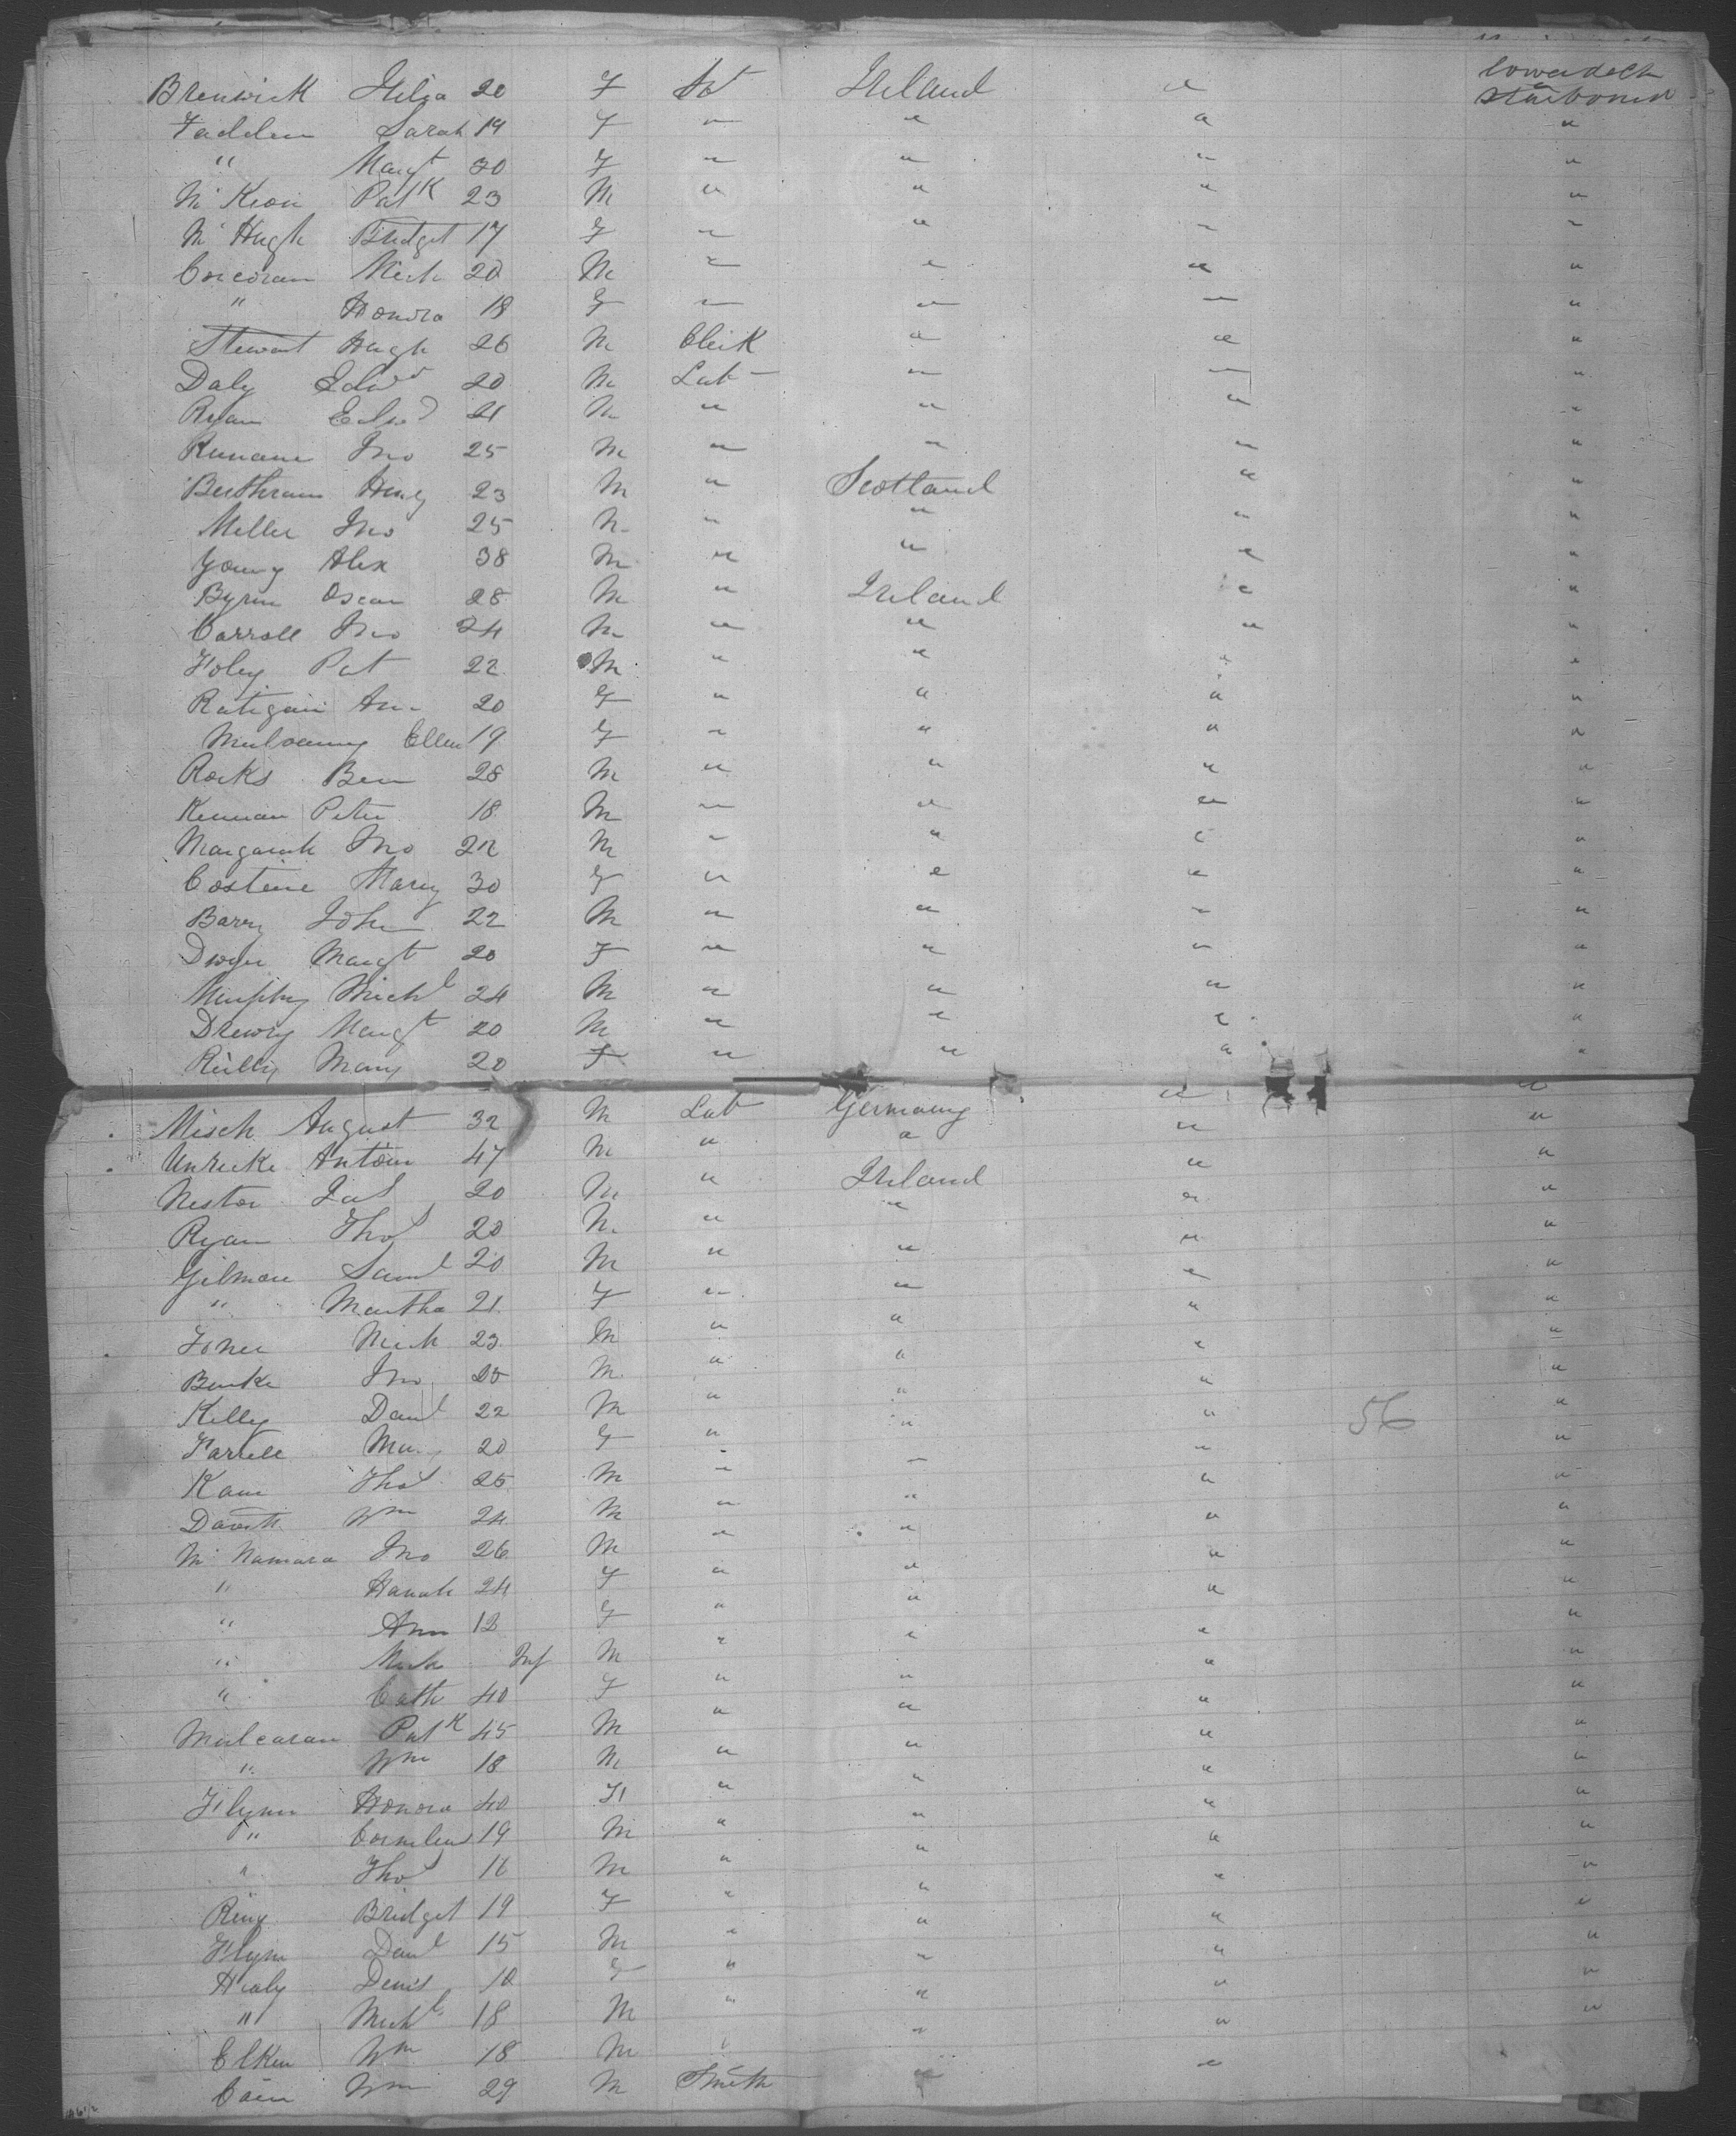 lowerdeck
Brenwick 20 F Ireland " starboard
Fadden Sarah 19 F " " " "
" Margt 20 F " " " "
Mc Keon Patk 23 M " " " "
Mc Hugh Bridget 17 F " " " "
Corcoran Mich 20 M " " " "
" Honora 18 F " " " "
Stewart Hugh 26 M Clerk " " "
Daly Edwd 20 M Lab " " "
Ryan Edwd 21 M " " " "
Jno 25 M " " " "
Henry 23 M " Scotland " "
Miller Jno 25 M " " " "
Young Alex 38 M " " " "
Byrne Oscar 28 M " Ireland " "
Carroll Jno 24 M " " " "
Foley Pat 22 M " " " "
Ratigan Ann 20 F " " " "
Mulvanny Ellen 19 F " " " "
Rocks Ben 28 M " " " "
Keenan Peter 18 M " " " "
Jno M " " " "
Costine Mary 30 F " " " "
Barry John 22 M " " " "
Dwyer Margt 20 F " " " "
Murphy Michl 24 M " " " "
Drewry Margt 20 M " " " "
Reilly Mary 20 F " " " "
Misch August 32 M Lab Germany " "
Antoin 47 M " " " "
Nestor Jas 20 M " Ireland " "
Ryan Thos 20 M " " " "
Gilmore Saml 20 M " " " "
" Martha 21 F " " " "
Mich 23 M " " " "
Burke Jno M " " " "
Kelly Danl 22 M " " " 56 "
Farrell 20 F " " " "
Kane Thos 25 M " " " "
Davitt Wm 24 M " " " "
Mc Namara Jno 26 M " " " "
" Hanah 24 F " " " "
" Ann F " " " "
" Inf M " " " "
" Cath 40 F " " " "
Mulcaran Patk 45 M " " " "
" Wm 18 M " " " "
Flynn Honora 40 F " " " "
" Cornelius 19 M " " " "
" Thos M " " " "
Ring Bridget 19 F " " " "
Flynn Danl 15 M " " " "
Healy Denis F " " " "
" Michl 18 M " " " "
Elken Wm 18 M " " "
Cain Wm 29 M Smith " "